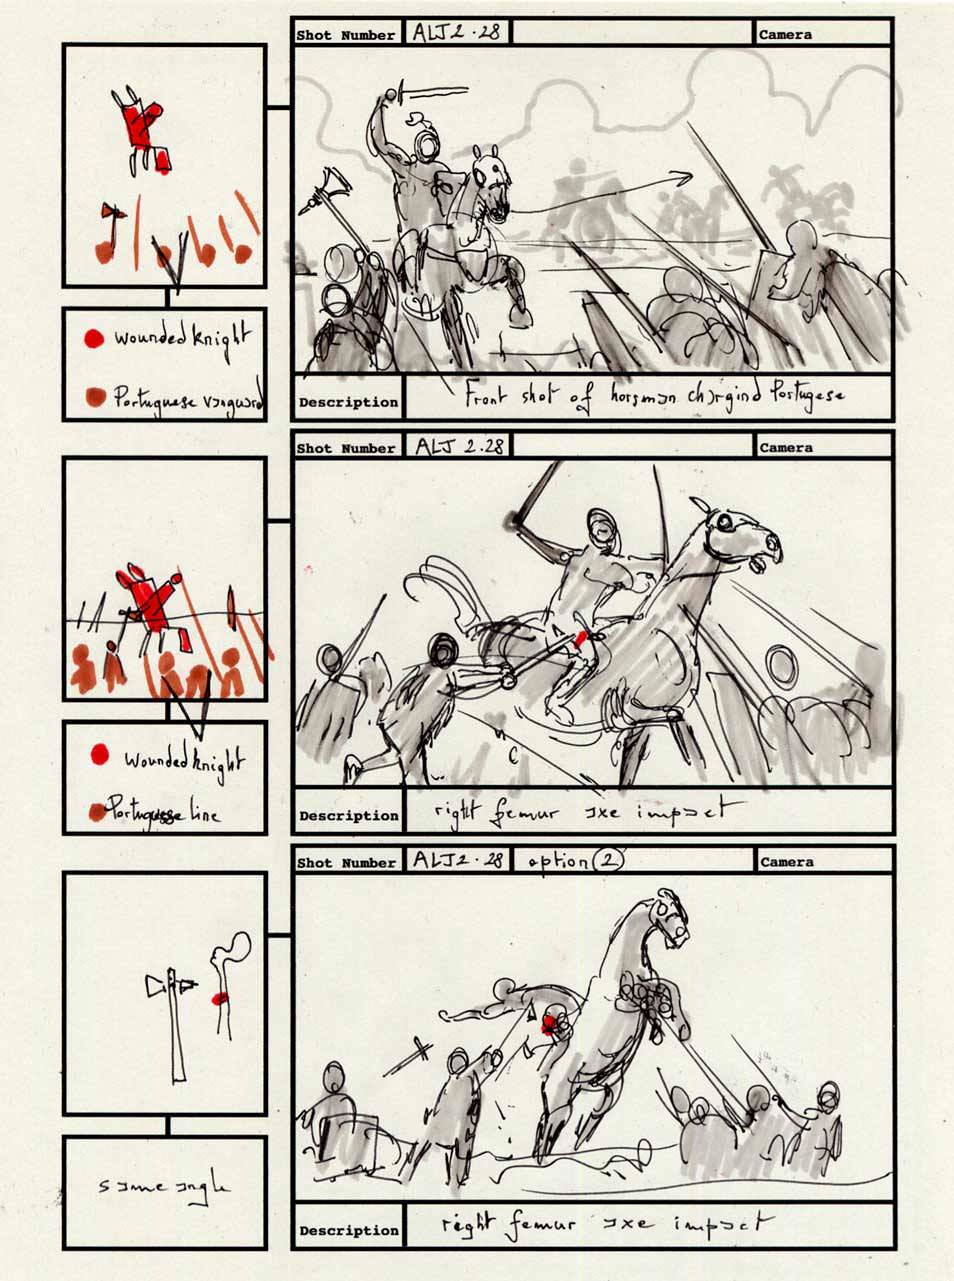 Shot Number ALJ2·28 Camera
wounded knight
Portuguese vanguard
Description Front shot of horsman chargind Portugese
Shot Number ALJ 2.28 Camera
wounded knight
Portuguese line
Description right femur axe impact
Shot Number ALJ2·28 option 2 Camera
same angle
Description right femur axe impact